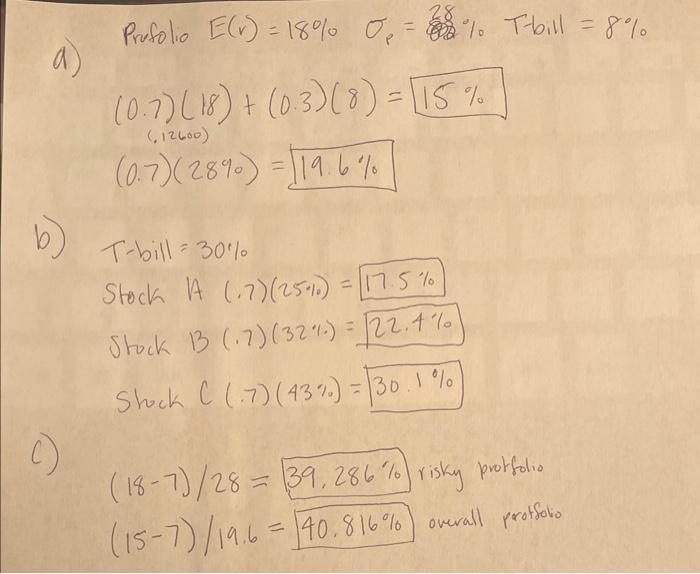 a) Prufolio E(r) = 18% σp = 28% T-bill = 8%
(0.7)(18) + (0.3)(8) = 15%
(.12600)
(0.7)(28%) = 19.6%
b) T-bill = 30%
Stock A (.7)(25%) = 17.5%
Stock B (.7)(32%) = 22.4%
Stock C (.7)(43%) = 30.1%
c)
(18-7)/28 = 39.286% risky protfolio
(15-7)/19.6 = 40.816% overall protfolio